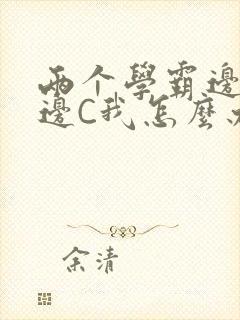 两个學霸邊
邊C我怎麼
余清